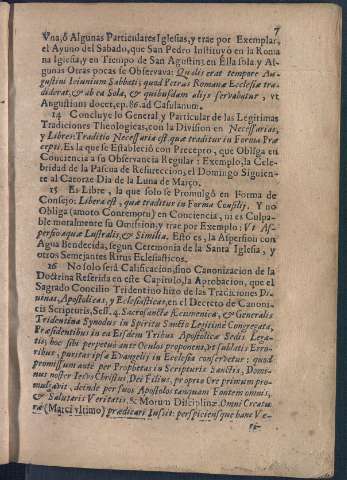 7
Vna, ô Algunas Particulares Iglesias, y trae por Exemplar,
el Ayuno del Sabado, que San Pedro Instituyò en la Roma
na Iglesia, y en Tiempo de San Agustin: en Ella sola y Al-
gunas Otras pocas se Observava: Qualis erat tempore Au-
gustini Ieiunium Sabbati; quod Petrus Romanæ Ecclesiæ tra-
diderat, & ab ea Sola, & quibusdam alijs servabatur, vt
Augustinus docet, ep. 86. ad Casulanum.
14 Concluye lo General y Particular de las Legitimas
Tradiciones Theologicas, con la Division en Necessarias,
y Libres: Traditio Necessaria est quæ traditur in Forma Præ
cepti. Es la que se Estableciò con Precepto, que Obliga en
Conciencia a su Observancia Regular: Exemplo, la Cele-
bridad de la Pascua de Resurreccion, el Domingo Siguien-
te al Catorze Dia de la Luna de Março.
15 Es Libre, la que solo se Promulgò en Forma de
Consejo: Libera est, quæ traditur in Forma Consilij. Y no
Obliga (amoto Contemptu) en Conciencia, ni es Culpa-
ble mortalmente su Omission, y trae por Exemplo: Vt As-
persio aquæ Lustralis, & Similia. Esto es, la Aspersion con
Agua Bendecida, segun Ceremonia de la Santa Iglesia, y
otros Semejantes Ritus Eclesiasticos.
16 No solo serà Calificacion, sino Canonizacion de la
Doctrina Referida en este Capitulo, la Aprobacion, que el
Sagrado Concilio Tridentino hizo de las Tradiciones Di-
vinas, Apostolicas, y Eclesiasticas, en el Decreto de Canoni-
cis Scripturis, Sess. 4. Sacrosancta Œcumenica, & Generalis
Tridentina Synodus in Spiritu Sancto Legitimè Congregata,
Præsidentibus in ea Eisdem Tribus Apostolicæ Sedis Lega-
tis; hoc sibi perpetuò ante Oculos proponens, vt sublatis Erro-
ribus, puritas ipsa Evangelij in Ecclesia conservetur; quod
promissum antè per Prophetas in Scripturis Sanctis, Domi-
nus noster Iesus Christus, Dei Filius, proprio Ore primum pro-
mulgavit, deinde per suos Apostolos tanquam Fontem omnis,
& Salutaris Veritatis, & Morum Disciplinæ Omni Creatu
ræ (Marci vltimo) prædicari Iussit: perspiciensque hanc Ve-